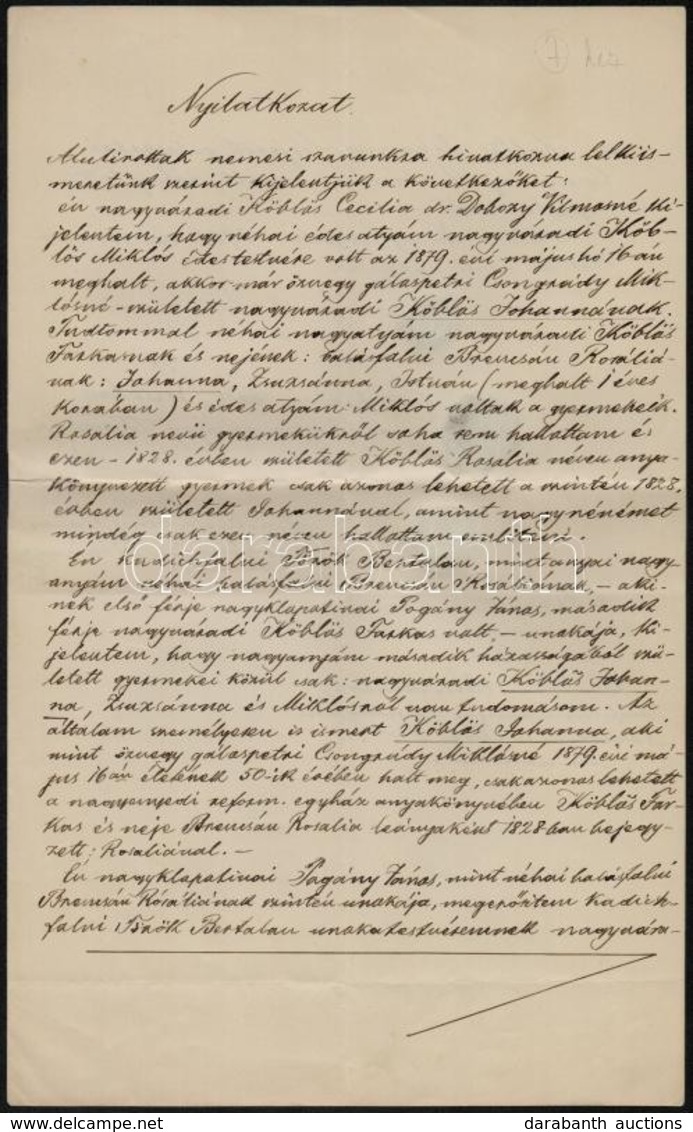 Nyilatkozat.
Alulirottak nemesi szavunkra hivatkozva lelkiis-
meretünk szerint kijelentjük a következőket:
én nagyváradi Köblös Cecilia dr. Dobozy Vilmosné ki-
jelentem, hogy néhai édes atyám nagyváradi Köb-
lös Miklós édestestvére volt az 1879. évi május hó 16-án
meghalt, akkor már özvegy gálaspetri Csongrády Mik-
lósné - született nagyváradi Köblös Johannának.
Tudtommal néhai nagyatyám nagyváradi Köblös
Farkasnak és nejének: balásfalvi Brencsán Rosáliá-
nak: Johanna, Zsuzsánna, István (meghalt 1 éves
korában) és édes atyám: Miklós voltak a gyermekeik.
Rosalia nevü gyermekükről soha sem hallottam és
ezen - 1828. évben született Köblös Rosalia néven anya-
könyvezett gyermek csak azonos lehetett a szintén 1828.
évben született Johannával, amint nagynénémet
mindég csak ezen néven hallottam említeni.
Én kadichfalvi Török Bertalan, mint anyai nagy-
anyám néhai balásfalvi Brencsán Rosáliának, - aki-
nek első férje nagyklopotivai Pogány János, második
férje nagyváradi Köblös Farkas volt, - unokája, ki-
jelentem, hogy nagyanyám második házasságából szü-
letett gyermekei közül csak: nagyváradi Köblös Johan-
na, Zsuzsánna és Miklósról van tudomásom. Az
általam személyesen is ismert Köblös Johanna, aki
mint özvegy gálaspetri Csongrády Miklósné 1879. évi má-
jus 16-án életének 50-ik évében halt meg, csak azonos lehetett
a nagyenyedi reform. egyház anyakönyvében Köblös Far-
kas és neje Brencsán Rosalia leányaként 1828-ban bejegy-
zett: Rosaliával. -
Én nagyklopotivai Pogány János, mint néhai balásfalvi
Brencsán Rosáliának szintén unokája, megerősitem kadich-
falvi Török Bertalan unokatestvéremnek nagyvára-
darabanth
darabanth auctions